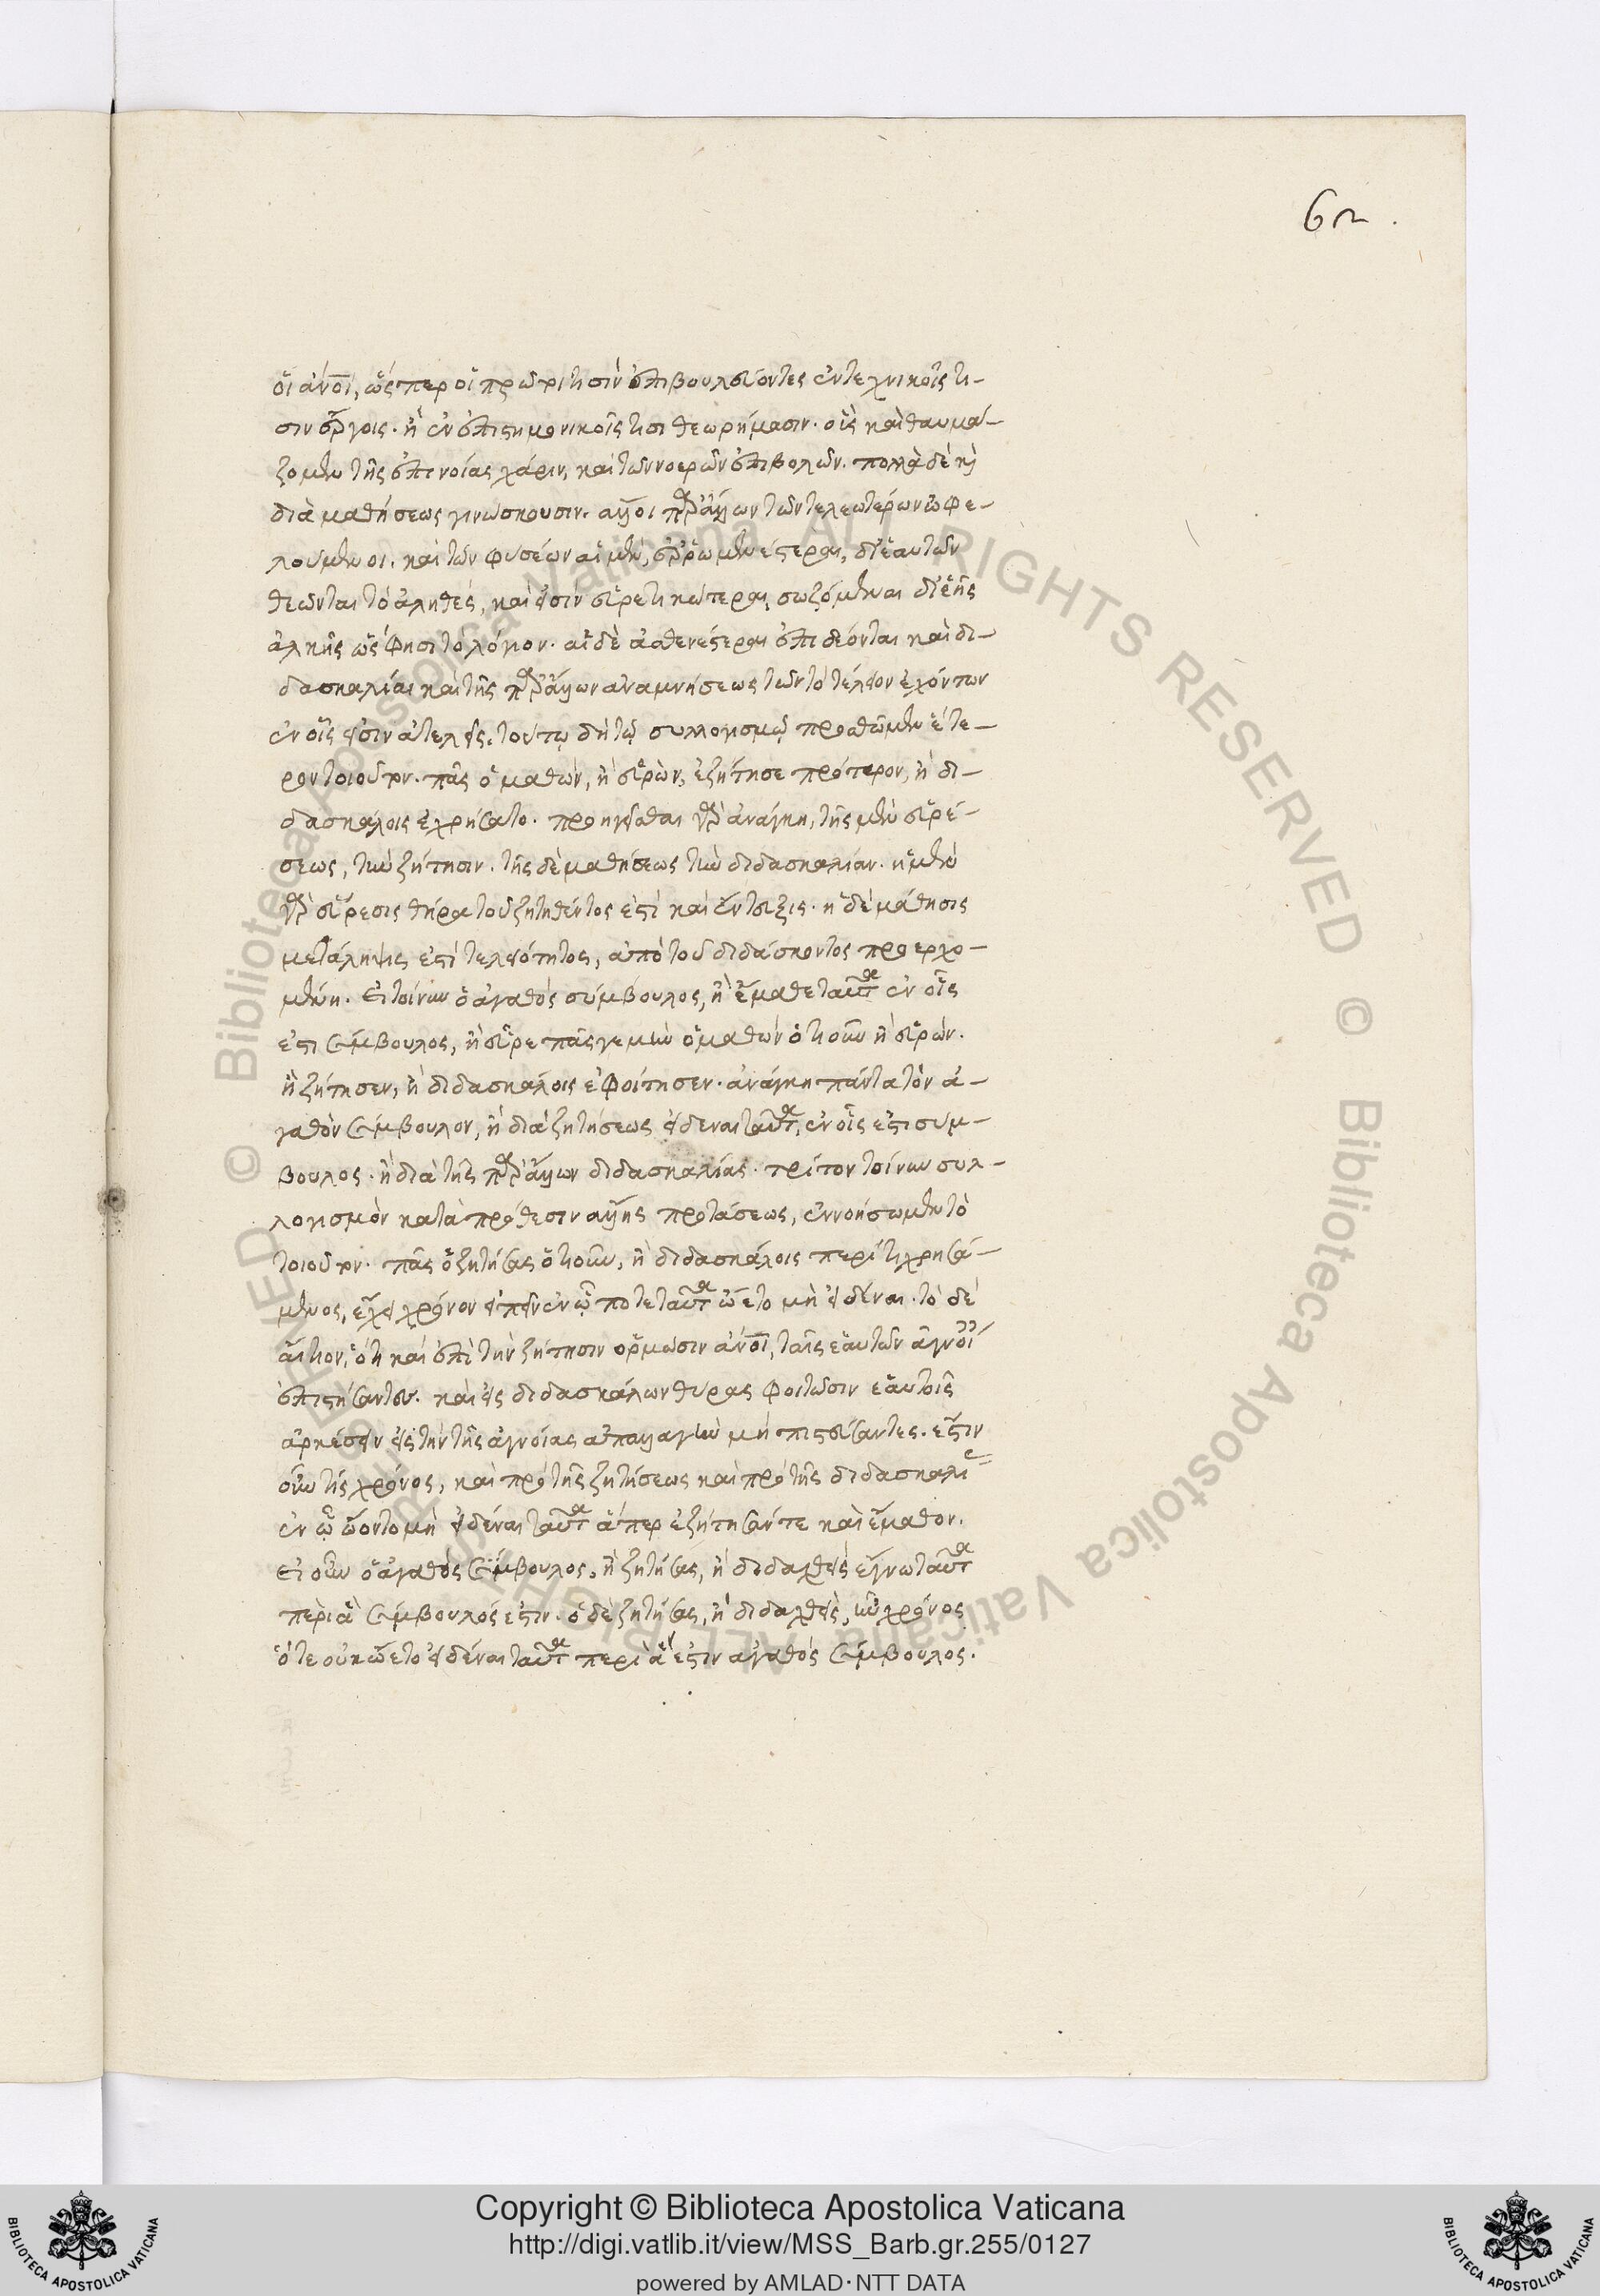 62.
οἱ ἄνοι, ὥσπερ οἱ πρῶτοι τισὶν ἐπιβουλεύοντες ἐν τεχνικοῖς τι-
σιν ἔργοις. ἢ ἐν ἐπιστημονικοῖς τισι θεωρήμασιν. οἷς καὶ θαυμά-
ζομεν τῆς ἐπινοίας χάριν, καὶ τῶν νοερῶν ἐπιβολῶν. πολλὰ δὲ καὶ
διὰ μαθήσεως γινώσκουσιν. αὐτοὶ παρ' ἄλλων τῶν τελεωτέρων ὠφε-
λούμενοι. καὶ τῶν φυσέων αἱ μὲν, ἐρρωμενέστεραι, δι' ἑαυτῶν
θεῶνται τὸ ἀληθές, καὶ εἰσὶν εὑρετικώτεραι, σωζόμεναι δι' ἑῆς
ἀλκῆς ὥς φησι τὸ λόγιον. αἱ δὲ ἀσθενέστεραι ἐπιδέονται καὶ δι-
δασκαλίαι καὶ τῆς παρ' ἄλλων ἀναμνήσεως τῶν τὸ τέλειον ἐχόντων
ἐν οἷς εἰσιν ἀτελεῖς. τούτῳ δὴ τῷ συλλογισμῷ προσθῶμεν ἕτε-
ρον τοιοῦτον. πᾶς ὁ μαθὼν, ἢ εὑρὼν, ἐζήτησε πρότερον, ἢ δι-
δασκάλοις ἐχρήσατο. προηγεῖσθαι γὰρ ἀνάγκη, τῆς μὲν εὑρέ-
σεως, τὴν ζήτησιν. τῆς δὲ μαθήσεως τὴν διδασκαλίαν. ἡ μὲν
γὰρ εὕρεσις θήρα τοῦ ζητηθέντος ἐστὶ καὶ ἔντευξις. ἡ δὲ μάθησις
μετάληψις ἐστὶ τελειότητος, ἀπὸ τοῦ διδάσκοντος προερχο-
μένη. εἰ τοίνυν ὁ ἀγαθὸς σύμβουλος, ἢ ἔμαθε ταῦτα ἐν οἷς
ἐστι σύμβουλος, ἢ εὗρε πᾶς γε μὴν ὁ μαθὼν ὁτιοῦν ἢ εὑρών.
ἢ ζήτησεν, ἢ διδασκάλοις ἐφοίτησεν. ἀνάγκη πάντα τὸν ἀ-
γαθὸν σύμβουλον, ἢ διὰ ζητήσεως εἰδέναι ταῦτα, ἐν οἷς ἐστι συμ-
βουλος. ἢ διὰ τῆς παρ' ἄλλων διδασκαλίας. τρίτον τοίνυν συλ-
λογισμὸν κατὰ πρόθεσιν ἄλλης προτάσεως, ἐννοήσωμεν τὸ
τοιοῦτον. πᾶς ὁ ζητήσας ὁτιοῦν, ἢ διδασκάλοις περί τι χρησά-
μενος, ἔχει χρόνον εἰπεῖν ἐν ᾧ ποτε ταῦτα ᾤετο μὴ εἰδέναι. τὸ δὲ
αἴτιον, ὅτι καὶ ἐπὶ τὴν ζήτησιν ὁρμῶσιν ἄνοι, ταῖς ἑαυτῶν ἀγνοί
ἐπιστήσαντες. καὶ εἰς διδασκάλων θύρας φοιτῶσιν ἑαυτοῖς
ἀρκέσειν εἰς τὴν τῆς ἀγνοίας ἀπαλλαγὴν μὴ πιστεύσαντες. ἔστιν
οὖν τίς χρόνος, καὶ πρὸ τῆς ζητήσεως καὶ πρὸ τῆς διδασκαλί
ἐν ᾧ ᾤοντο μὴ εἰδέναι ταῦτα ἅπερ ἐζήτησάν τε καὶ ἔμαθον.
εἰ οὖν ὁ ἀγαθὸς σύμβουλος, ἢ ζητήσας, ἢ διδαχθεὶς ἔγνω ταῦτα
περὶ ἃ σύμβουλός ἐστιν. ὁ δὲ ζητήσας, ἢ διδαχθεὶς, ἦν χρόνος
ὅτε οὐκ ᾤετο εἰδέναι ταῦτα περὶ ἅ ἐστιν ἀγαθὸς σύμβουλος.
Copyright © Biblioteca Apostolica Vaticana
http://digi.vatlib.it/view/MSS_Barb.gr.255/0127
powered by AMLAD·NTT DATA
BIBLIOTECA APOSTOLICA VATICANA
BIBLIOTECA APOSTOLICA VATICANA
© Biblioteca Apostolica Vaticana ALL RIGHTS RESERVED © Biblioteca Apostolica Vaticana ALL RIGHTS RESERVED